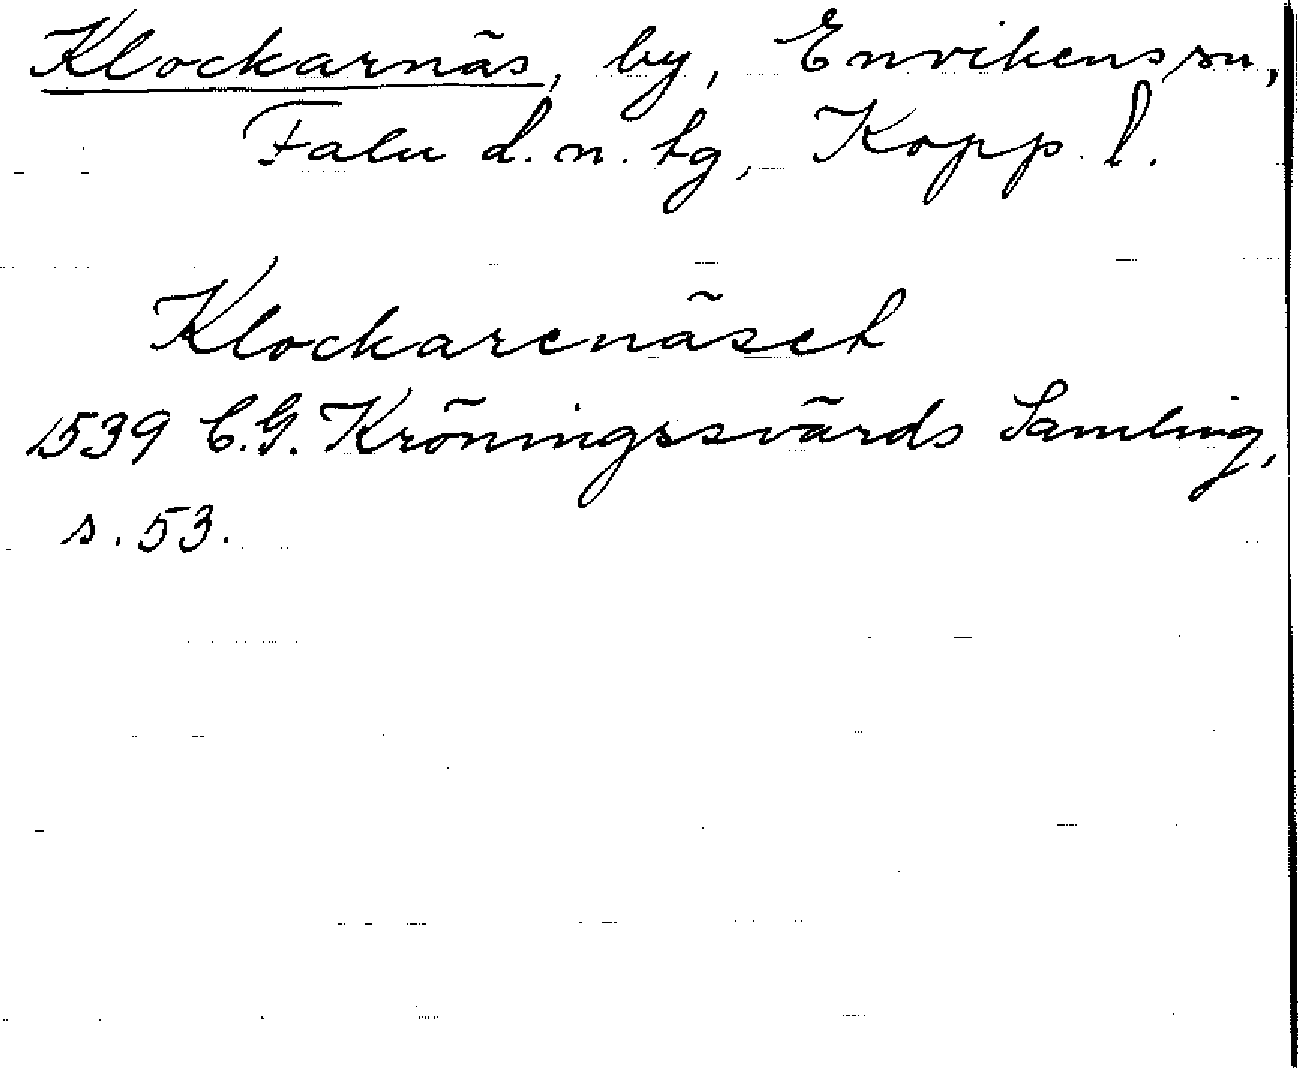 Klockarnäs, by, Envikens sn,
Falu d. n. tg, Kopp. l.
Klockarenäset
1539 C.G. Kröningssvärds Samling,
s. 53.